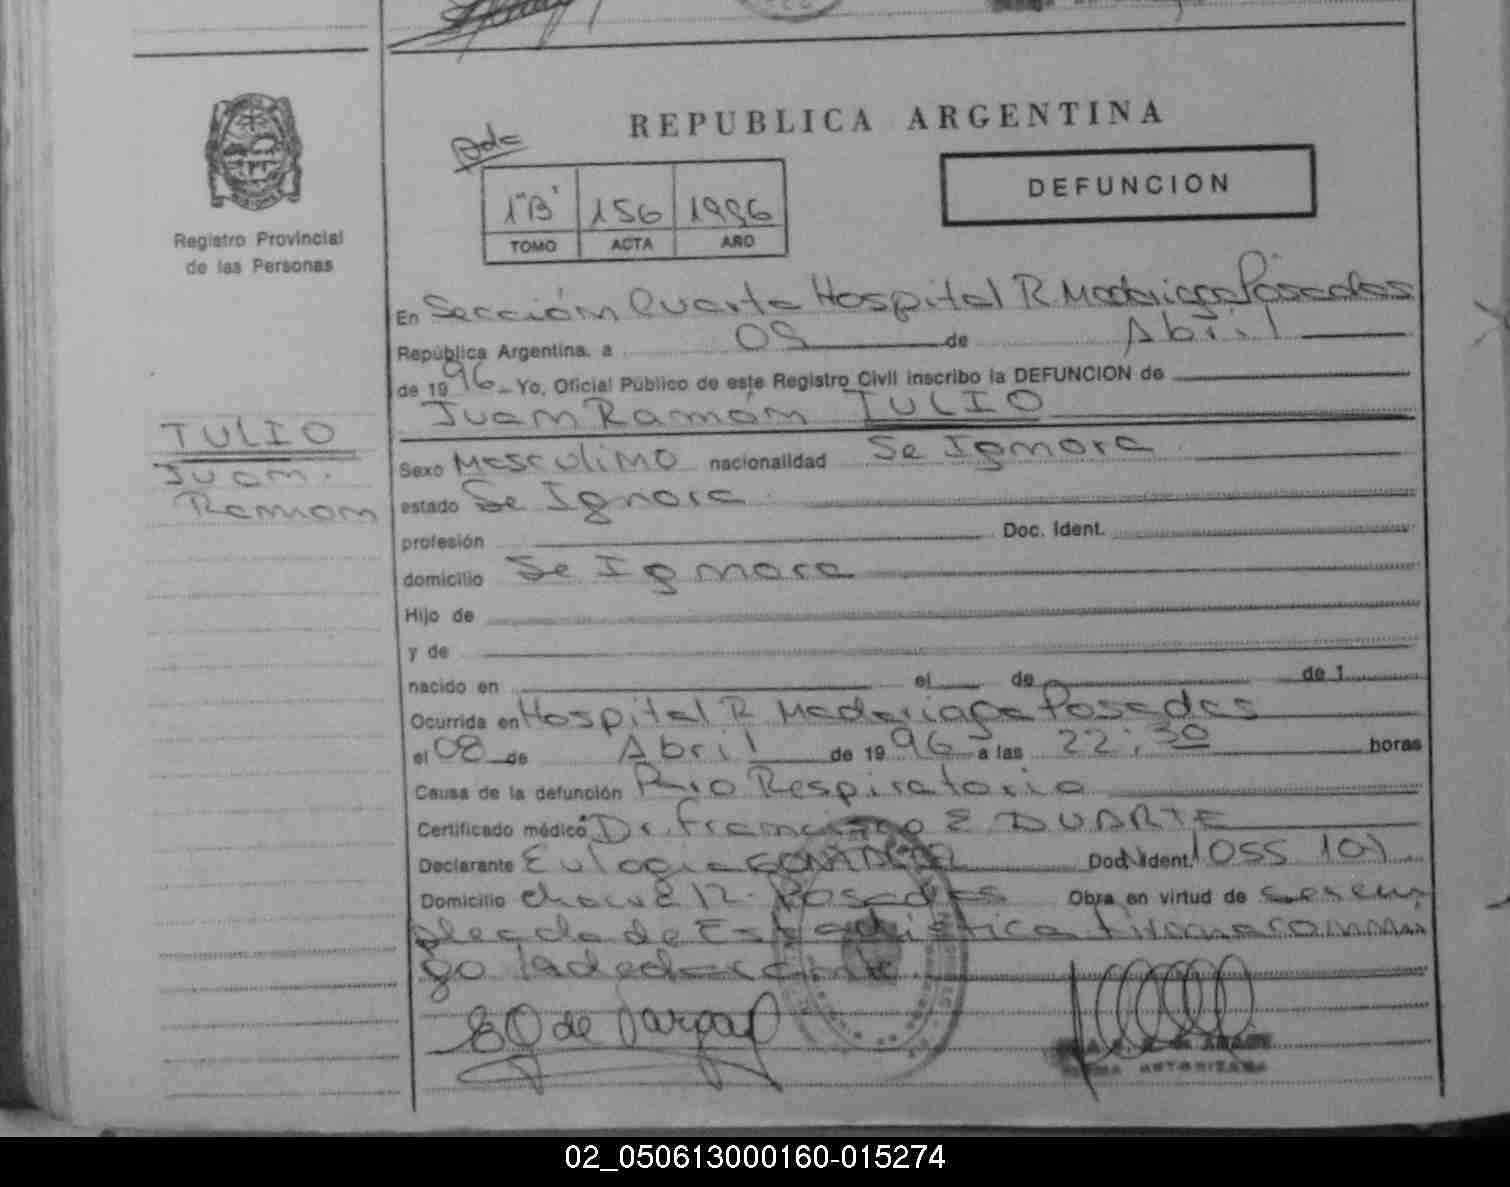 REPUBLICA ARGENTINA
DEFUNCION
1"B" 156 1996
TOMO ACTA AÑO
Registro Provincial
de las Personas
En Sección Cuarta Hospital R Madariaga Posadas
República Argentina, a 09 de Abril
de 1996 Yo, Oficial Público de este Registro Civil inscribo la DEFUNCION de
Juan Ramón TULIO
TULIO
Juan
Ramon
Sexo Masculino nacionalidad Se Ignora
estado Se Ignora
profesión Doc. Ident.
domicilio Se Ignora
Hijo de
y de
nacido en el de de 1
Ocurrida en Hospital R Madariaga Posadas
el 08 de Abril de 1996 a las 22:30 horas
Causa de la defunción Respiratorio
Certificado médico Dr. Francisco E DUARTE
Declarante Eulogia Doc. Ident.
Domicilio Posadas Obra en virtud de ser em
pleada de Estadistica firma conmi
go la declarante
de
02_050613000160-015274